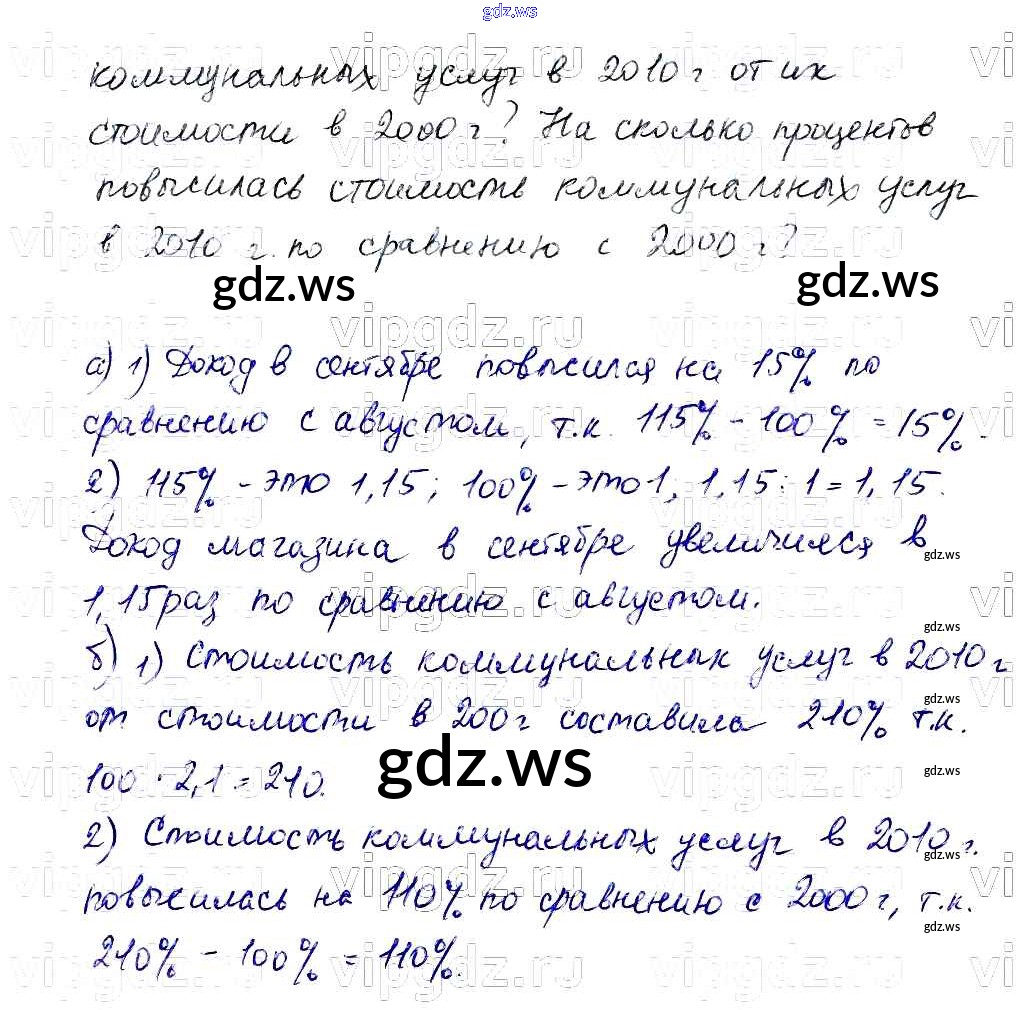 gdz.ws
коммунальных услуг в 2010 г от их
стоимости в 2000 г? На сколько процентов
повысилась стоимость коммунальных услуг
в 2010 г. по сравнению с 2000 г?
gdz.ws gdz.ws
а) 1) Доход в сентябре повысился на 15% по
сравнению с августом, т.к. 115% - 100% = 15%.
2) 115% - это 1,15; 100% - это 1, 1,15 : 1 = 1,15.
Доход магазина в сентябре увеличился в
gdz.ws
1,15 раз по сравнению с августом.
gdz.ws
б) 1) Стоимость коммунальных услуг в 2010 г
gdz.ws
от стоимости в 200 г составила 210% т.к.
gdz.ws
100 · 2,1 = 210.
gdz.ws
2) Стоимость коммунальных услуг в 2010 г.
gdz.ws
повысилась на 110% по сравнению с 2000 г, т.к.
gdz.ws
210% - 100% = 110%.
vipgdz.ru vipgdz.ru vipgdz.ru